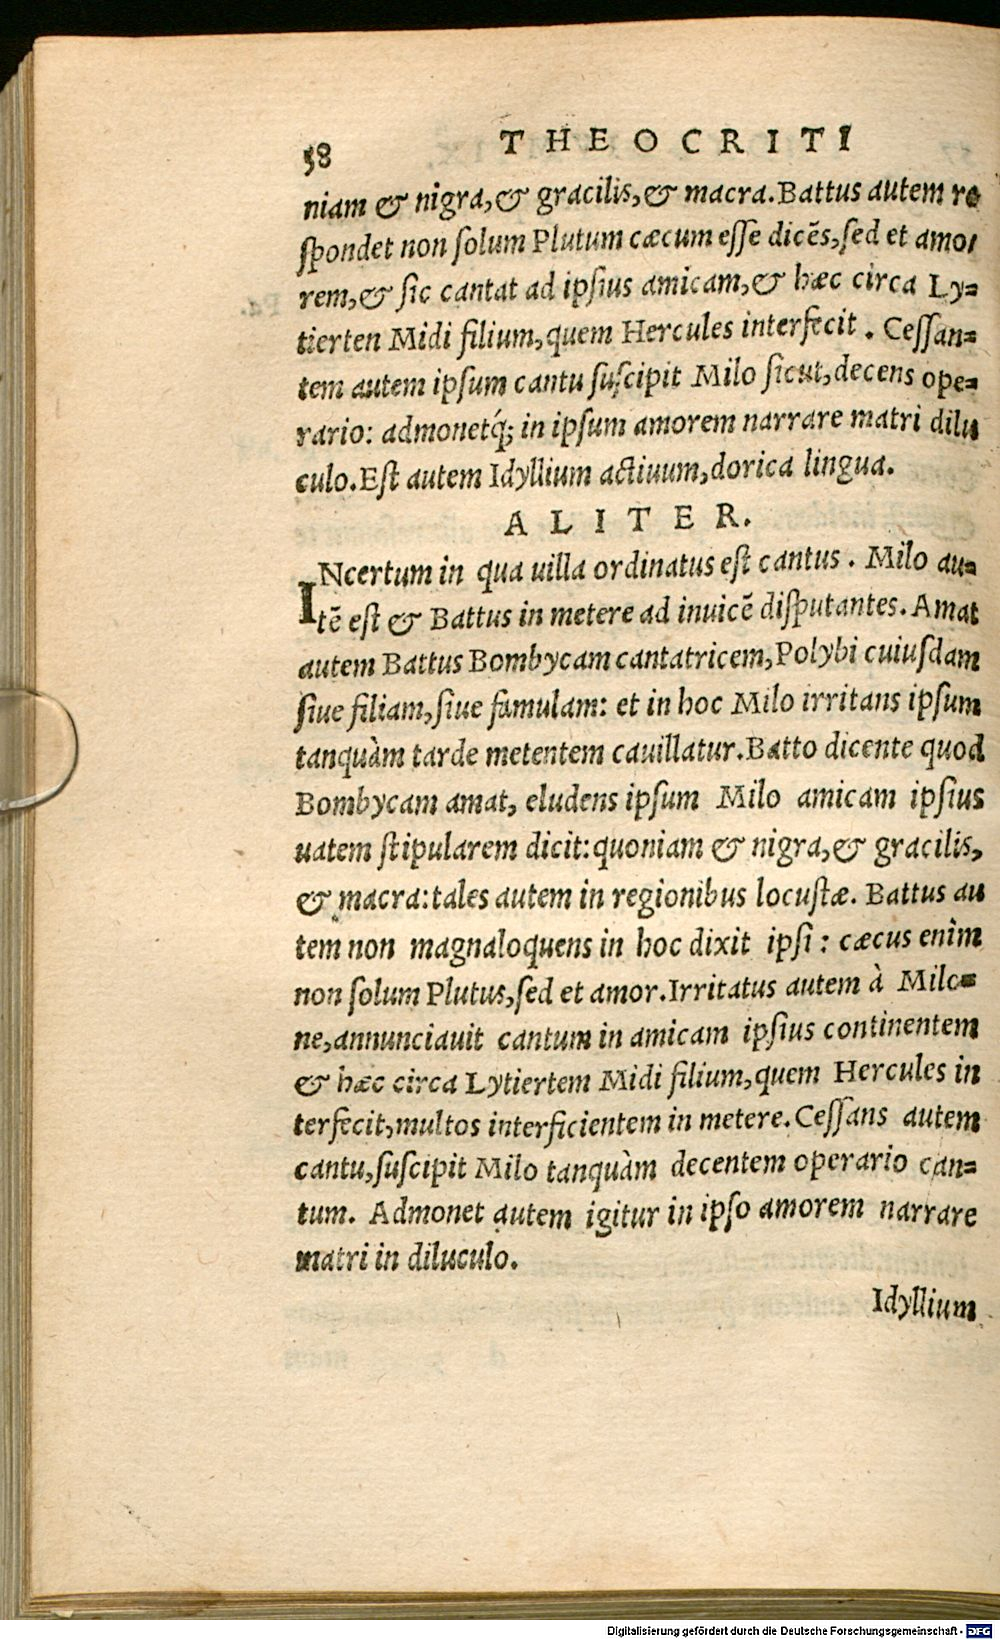 58 THEOCRITI
niam & nigra,& gracilis,& macra.Battus autem re
ſpondet non ſolum Plutum cæcum eſſe dicẽs,ſed et amo
rem,& ſic cantat ad ipſius amicam,& hæc circa Ly=
tierten Midi filium,quem Hercules interfecit . Ceſſan=
tem autem ipſum cantu ſuſcipit Milo ſicut,decens ope=
rario: admonetq́; in ipſum amorem narrare matri dilu
culo.Eſt autem Idyllium actiuum,dorica lingua.
ALITER.
INcertum in qua uilla ordinatus eſt cantus . Milo au=
tẽ eſt & Battus in metere ad inuicẽ diſputantes. Amat
autem Battus Bombycam cantatricem,Polybi cuiuſdam
ſiue filiam,ſiue famulam: et in hoc Milo irritans ipſum
tanquàm tarde metentem cauillatur.Batto dicente quod
Bombycam amat, eludens ipſum Milo amicam ipſius
uatem ſtipularem dicit:quoniam & nigra,& gracilis,
& macra:tales autem in regionibus locuſtæ. Battus au
tem non magnaloquens in hoc dixit ipſi : cæcus enim
non ſolum Plutus,ſed et amor.Irritatus autem à Milo=
ne,annunciauit cantum in amicam ipſius continentem
& hæc circa Lytiertem Midi filium,quem Hercules in
terfecit,multos interficientem in metere.Ceſſans autem
cantu,ſuſcipit Milo tanquàm decentem operario can=
tum. Admonet autem igitur in ipſo amorem narrare
matri in diluculo.
Idyllium
Digitalisierung gefördert durch die Deutsche Forschungsgemeinschaft - DFG